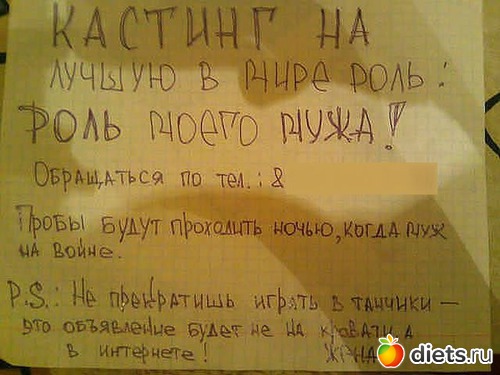 КАСТИНГ НА
ЛУЧШУЮ В МИРЕ РОЛЬ:
РОЛЬ МОЕГО МУЖА!
ОБРАЩАТЬСЯ ПО ТЕЛ.: 8
ПРОБЫ БУДУТ ПРОХОДИТЬ НОЧЬЮ, КОГДА МУЖ
НА ВОЙНЕ.
P.S.: НЕ ПРЕКРАТИШЬ ИГРАТЬ В ТАНЧИКИ —
ЭТО ОБЪЯВЛЕНИЕ БУДЕТ НЕ НА КРОВАТИ, А
В ИНТЕРНЕТЕ! ЖЕНА
diets.ru